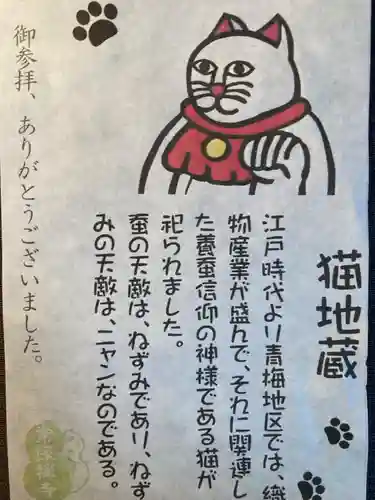 猫地蔵
江戸時代より青梅地区では、織
物産業が盛んで、それに関連し
た養蚕信仰の神様である猫が
祀られました。
蚕の天敵は、ねずみであり、ねず
みの天敵は、ニャンなのである。
御参拝、ありがとうございました。